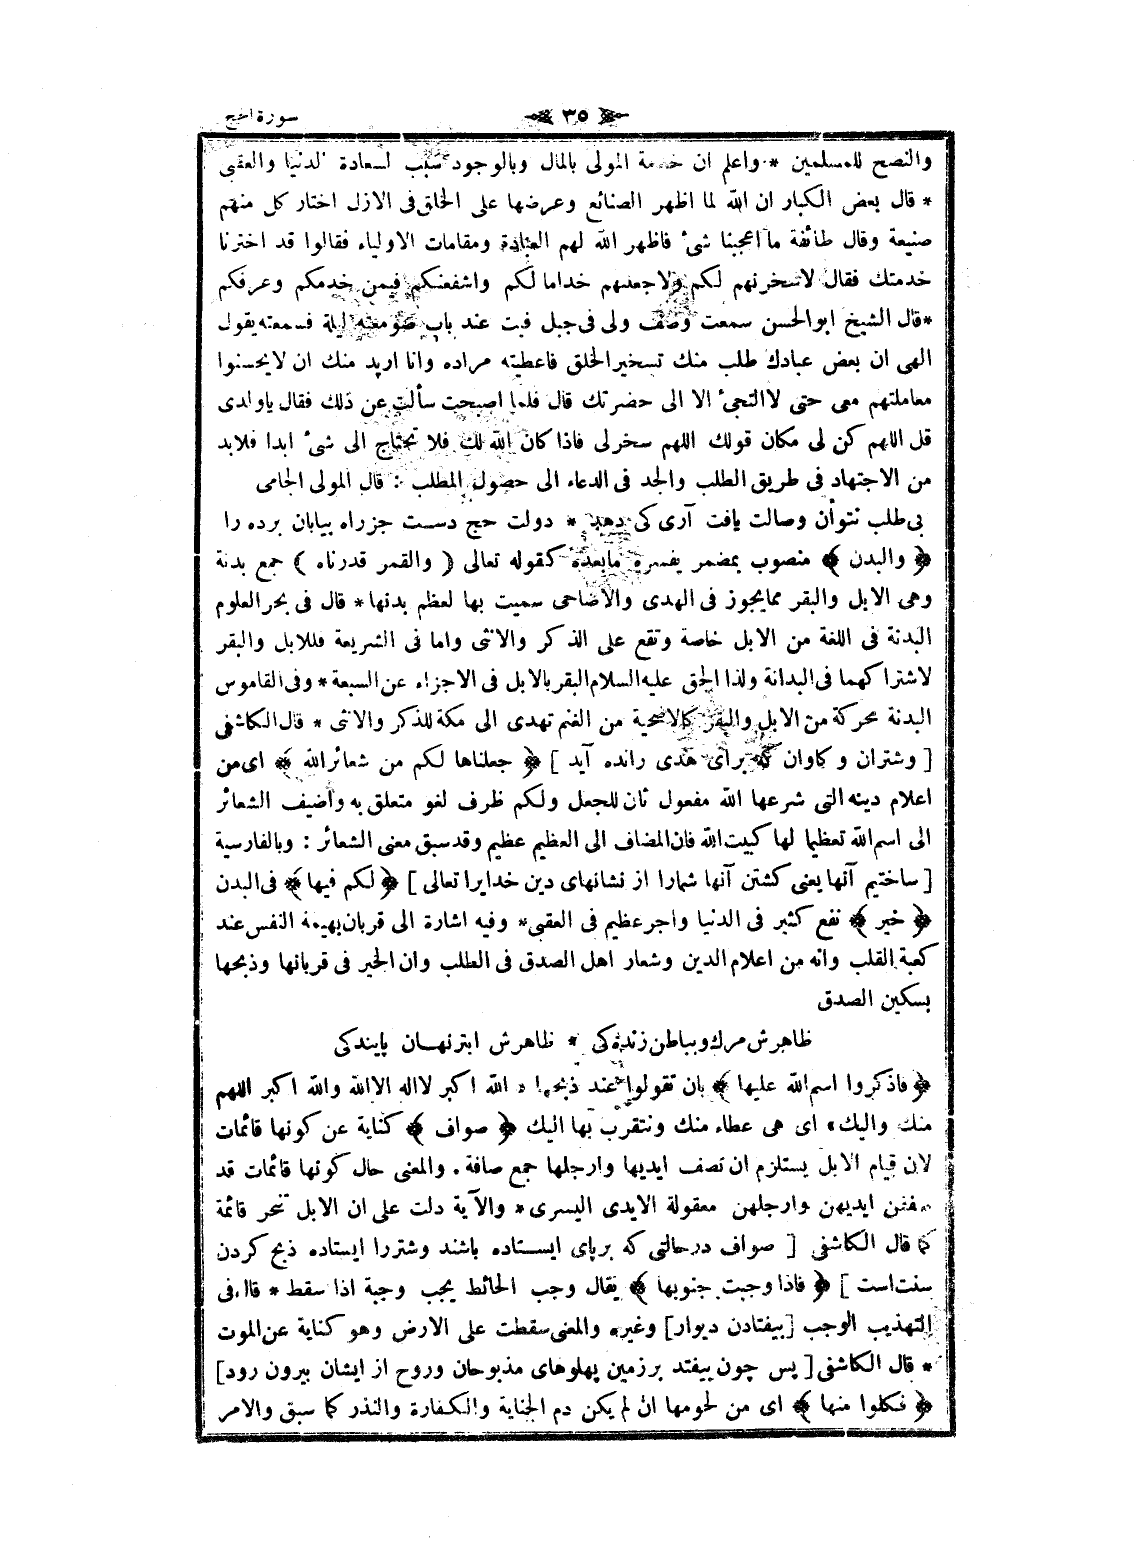 سورة الحج
٣٥
والنصح للمسلمين * واعلم ان خدمة المولى بالمال وبالوجود سبب لسعادة الدنيا والعقبى
* قال بعض الكبار ان الله لما اظهر الصنائع وعرضها على الخلق فى الازل اختار كل منهم
صنيعة وقال طائفة ما اعجبنا شئ فاظهر الله لهم العبادة ومقامات الاولياء فقالوا قد اخترنا
خدمتك فقال لاسخرنهم لكم ولاجعلنهم خداما لكم واشفعنكم فيمن خدمكم وعرفكم
* قال الشيخ ابوالحسن سمعت وصف ولى فى جبل فبت عند باب صومعته ليلة فسمعته يقول
الهى ان بعض عبادك طلب منك تسخير الخلق فاعطيته مراده وانا اريد منك ان لايحسنوا
معاملتهم معى حتى لاالتجئ الا الى حضرتك قال فلما اصبحت سألت عن ذلك فقال ياولدى
قل اللهم كن لى مكان قولك اللهم سخرلى فاذا كان الله لك فلا تحتاج الى شئ ابدا فلابد
من الاجتهاد فى طريق الطلب والجد فى الدعاء الى حصول المطلب : قال المولى الجامى
بى طلب نتوان وصالت يافت آرى كى دهد * دولت حج دست جزراه بيابان برده را
﴿ والبدن ﴾ منصوب بمضمر يفسره مابعده كقوله تعالى ( والقمر قدرناه ) جمع بدنة
وهى الابل والبقر ممايجوز فى الهدى والاضاحى سميت بها لعظم بدنها * قال فى بحر العلوم
البدنة فى اللغة من الابل خاصة وتقع على الذكر والانثى واما فى الشريعة فللابل والبقر
لاشتراكهما فى البدانة ولذا الحق عليه السلام البقر بالابل فى الاجزاء عن السبعة * وفى القاموس
البدنة محركة من الابل والبقر كالاضحية من الغنم تهدى الى مكة للذكر والانثى * قال الكاشفى
[ وشتران وكاوان كه براى هدى رانده آيد ] ﴿ جعلناها لكم من شعائر الله ﴾ اى من
اعلام دينه التى شرعها الله مفعول ثان للجعل ولكم ظرف لغو متعلق به واضيف الشعائر
الى اسم الله تعظيما لها كبيت الله فان المضاف الى العظيم عظيم وقد سبق معنى الشعائر : وبالفارسية
[ ساختيم آنها يعنى كشتن آنها شمارا از نشانهاى دين خدايرا تعالى ] ﴿ لكم فيها ﴾ فى البدن
﴿ خير ﴾ نفع كثير فى الدنيا واجر عظيم فى العقبى * وفيه اشارة الى قربان بهيمة النفس عند
كعبة القلب وانه من اعلام الدين وشعار اهل الصدق فى الطلب وان الخير فى قربانها وذبحها
بسكين الصدق
ظاهرش مرك وبباطن زنده كى * ظاهرش ابتر نهان پايندكى
﴿ فاذكروا اسم الله عليها ﴾ بان تقولوا عند ذبحها « الله اكبر لااله الاالله والله اكبر اللهم
منك واليك » اى هى عطاء منك ونتقرب بها اليك ﴿ صواف ﴾ كناية عن كونها قائمات
لان قيام الابل يستلزم ان تصف ايديها وارجلها جمع صافة . والمعنى حال كونها قائمات قد
صففن ايديهن وارجلهن معقولة الايدى اليسرى * والآية دلت على ان الابل تنحر قائمة
كما قال الكاشفى [ صواف درحالتى كه برپاى ايستاده باشند وشتررا ايستاده ذبح كردن
سنت است ] ﴿ فاذا وجبت جنوبها ﴾ يقال وجب الحائط يجب وجبة اذا سقط * قال فى
التهذيب الوجب [ بيفتادن ديوار ] وغيره والمعنى سقطت على الارض وهو كناية عن الموت
* قال الكاشفى [ پس چون بيفتد برزمين پهلوهاى مذبوحان وروح از ايشان بيرون رود ]
﴿ فكلوا منها ﴾ اى من لحومها ان لم يكن دم الجناية والكفارة والنذر كما سبق والامر